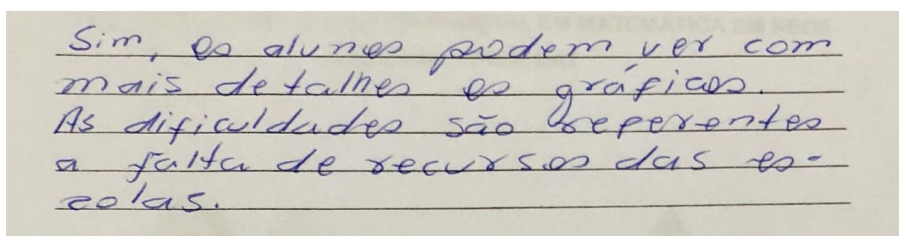 Sim, os alunos podem ver com
mais detalhes os gráficos.
As dificuldades são referentes
a falta de recursos das es-
colas.